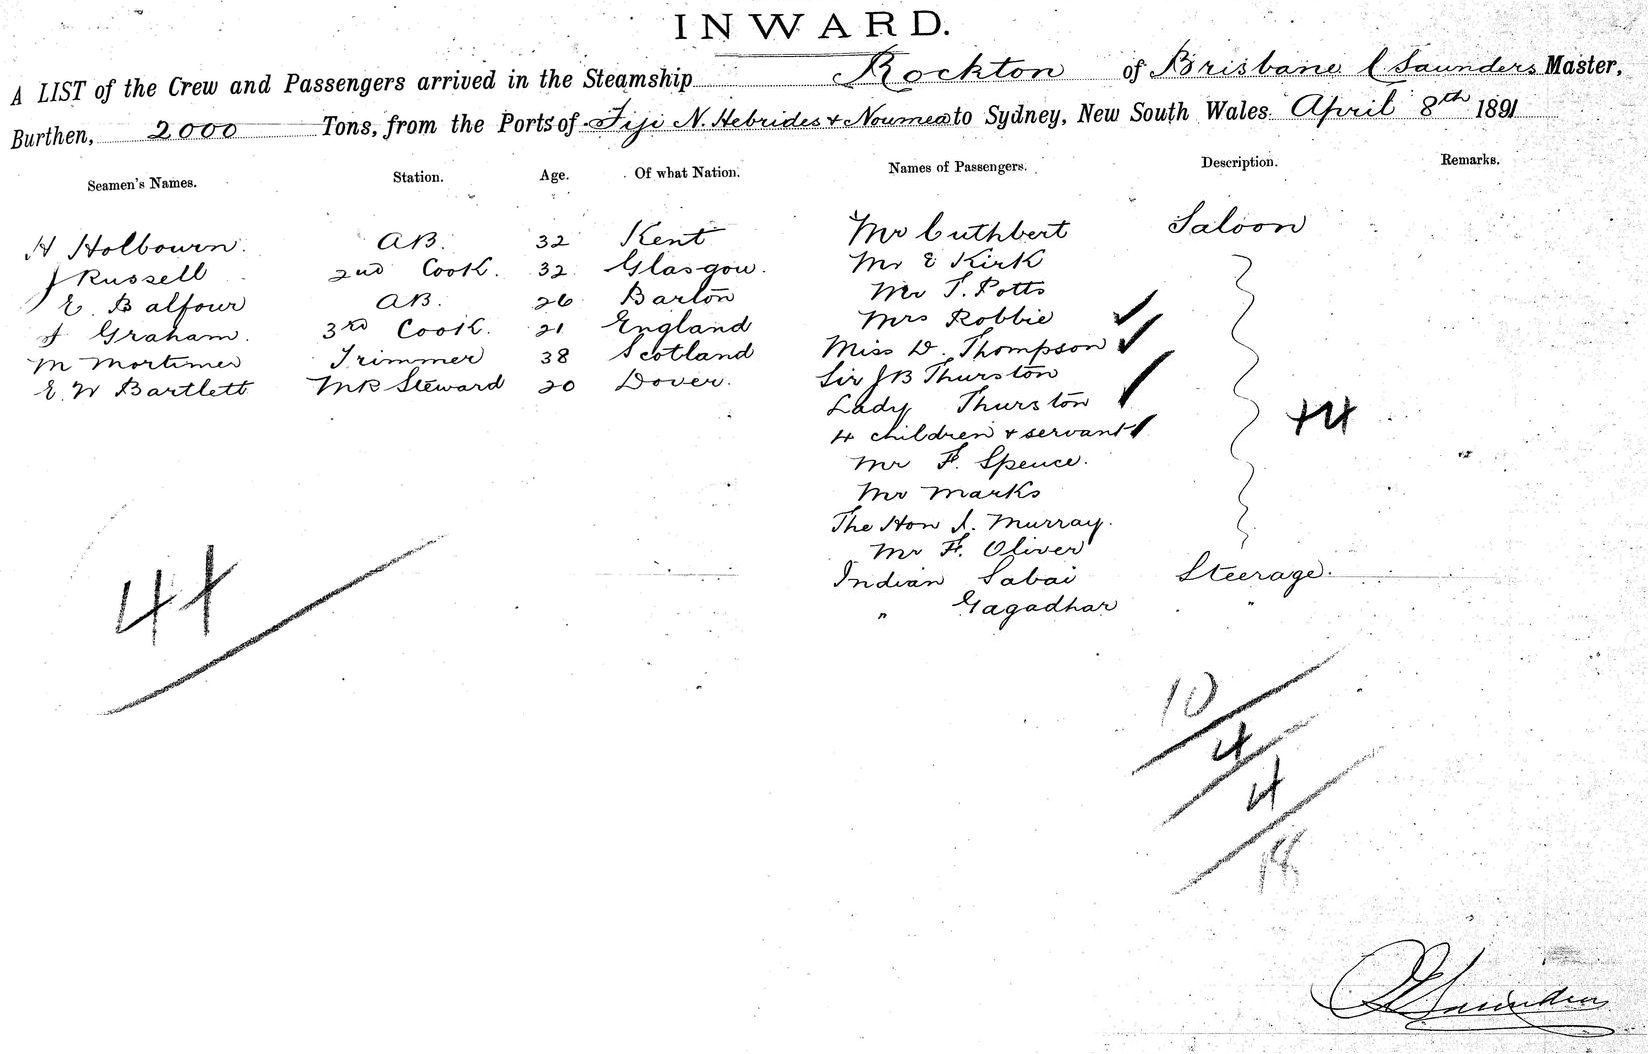 INWARD.
A LIST of the Crew and Passengers arrived in the Steamship Rockton of Brisbane C Saunders Master,
Burthen, 2000 Tons, from the Ports of Fiji N. Hebrides & Noumea to Sydney, New South Wales April 8th 1891
Seamen's Names. Station. Age. Of what Nation. Names of Passengers. Description. Remarks.
H Holbourn. AB. 32 Kent Mr Cuthbert Saloon
J Russell 2nd Cook. 32 Glasgow. Mr E Kirk
E. Balfour AB. 26 Barton Mr T. Potts
J Graham. 3rd Cook. 21 England Mrs Robbie
M Mortimer Trimmer 38 Scotland Miss D. Thompson
E. W Bartlett MR Steward 20 Dover. Sir J B Thurston
Lady Thurston
4 children & servant
+4
Mr F. Spence.
Mr Marks
The Hon J. Murray.
Mr F. Oliver
Indian Sabai Steerage.
" Gagadhar "
44
10
4
4
18
Saunders